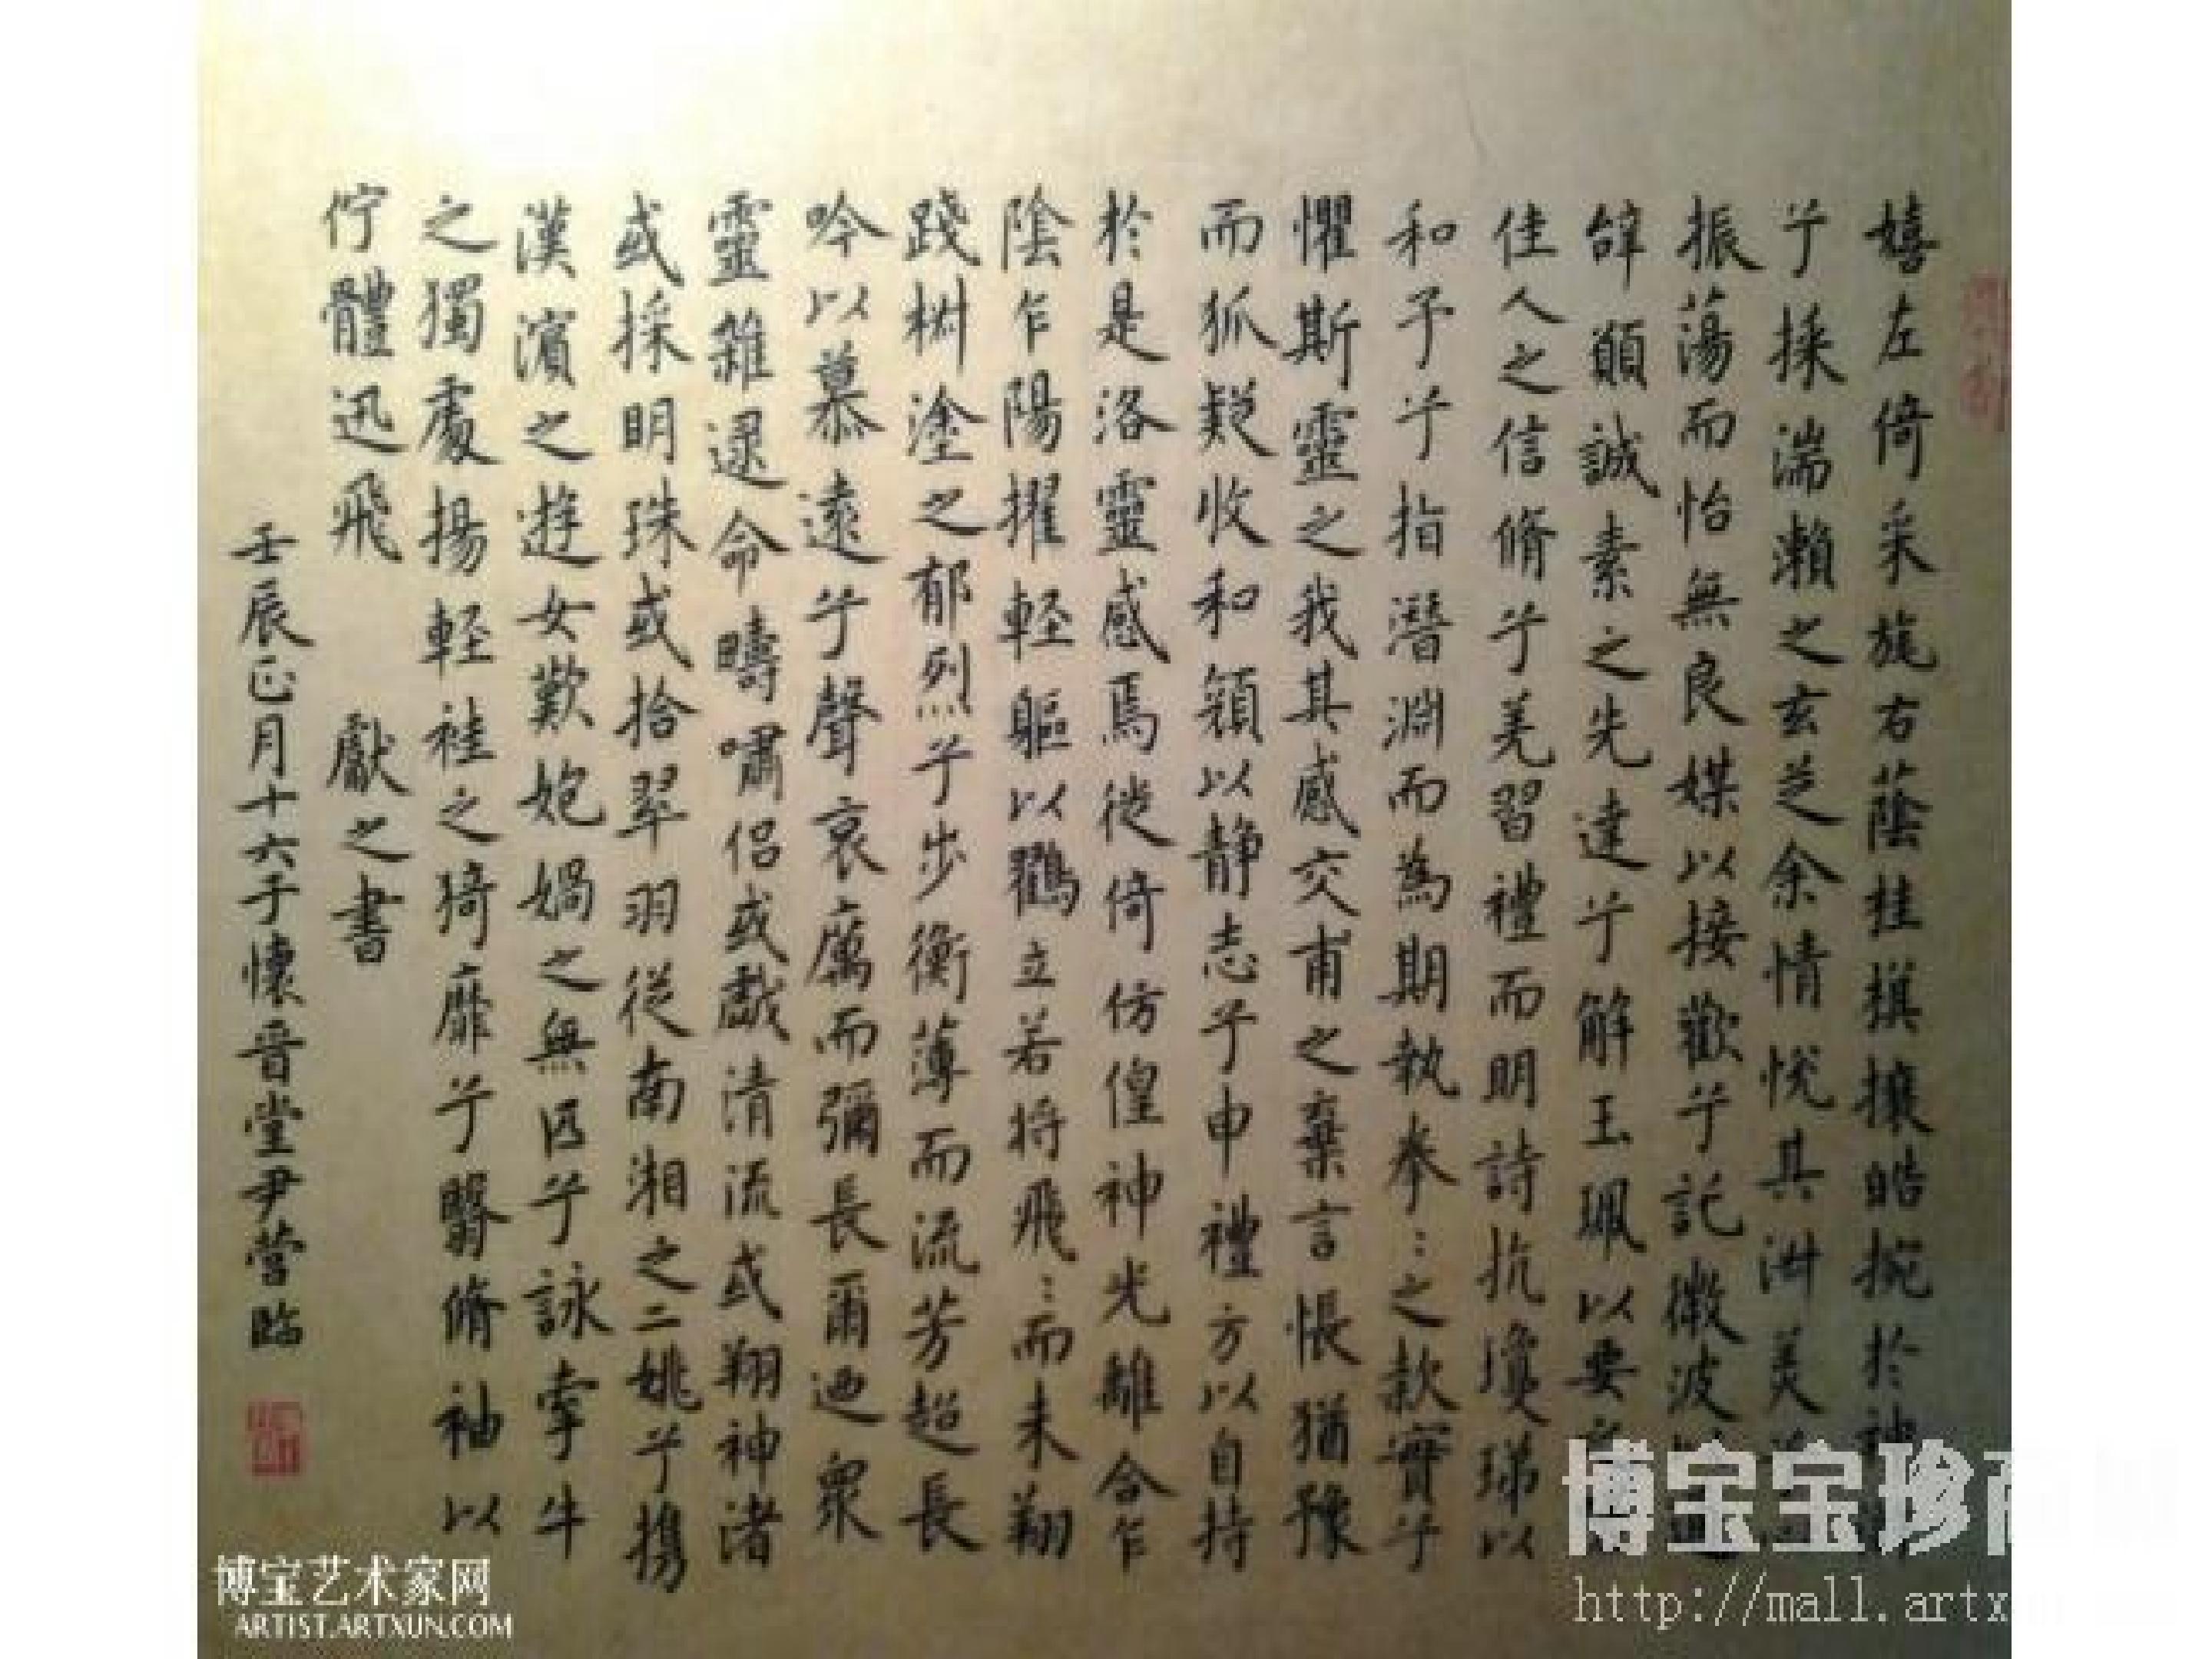 嬉左倚采旄右蔭桂旗攘皓捥於神
兮採湍瀨之玄芝余情悅其淑美
振蕩而怡無良媒以接歡兮託微波
辞願誠素之先達兮解玉珮以要
佳人之信脩兮羌習禮而明詩抗瓊珶以
和予兮指潛淵而為期執拳〻之款實兮
懼斯靈之我其感交甫之棄言悵猶豫
而狐疑收和顏以静志兮申禮方以自持
於是洛靈感焉徙倚仿偟神光離合乍
陰乍陽擢輕軀以鶴立若将飛〻而未翔
踐椒塗之郁烈兮步衡薄而流芳超長
吟以慕遠兮聲哀厲而彌長爾迺眾
靈雜遝命疇嘯侣或戲清流或翔神渚
或採明珠或拾翠羽從南湘之二姚兮携
漢濱之遊女歎匏媧之無匹兮詠牽牛
之獨處揚輕袿之猗靡兮翳脩袖以
佇體迅飛 獻之書
壬辰正月十六于懷晋堂尹营临
博宝艺术家网
ARTIST.ARTXUN.COM
博宝宝珍商
http://mall.artx